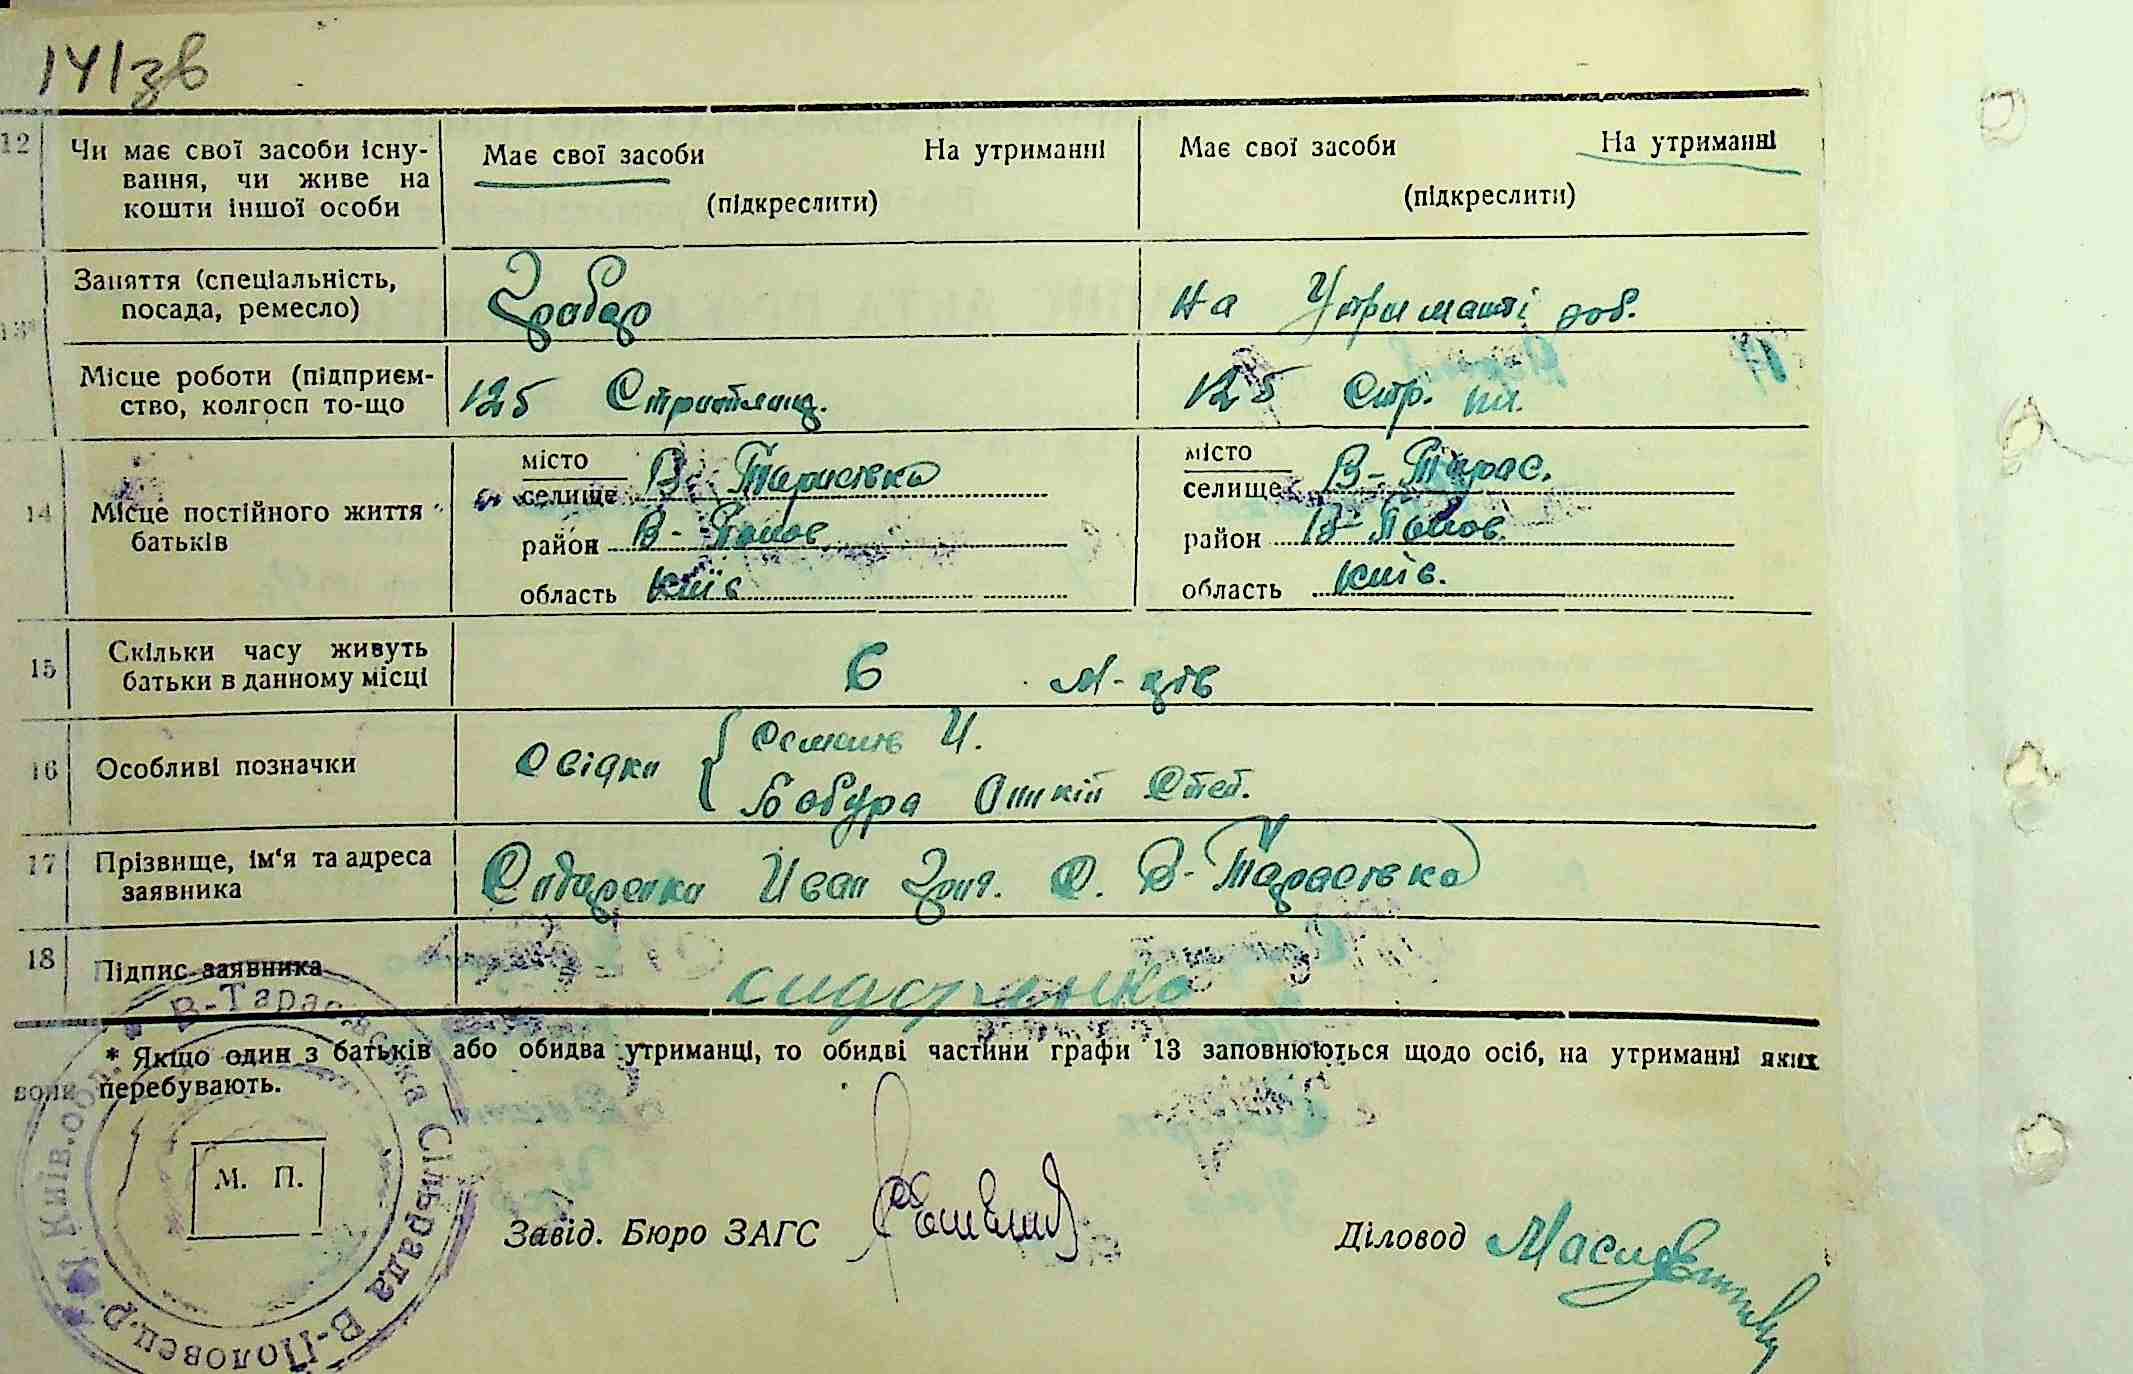 141зв
12 Чи має свої засоби існу- Має свої засоби На утриманні Має свої засоби На утриманні
вання, чи живе на
кошти іншої особи (підкреслити) (підкреслити)
13* Заняття (спеціальність, Грабар на Утриманні роб.
посада, ремесло)
Місце роботи (підприєм- 125 125 Стр.
ство, колгосп то-що
14 Місце постійного життя місто В-Тарасівка місто В-Тарас.
батьків селище селище
район В- Полов район В-Полов.
область Київ область Київ.
15 Скільки часу живуть 6 м-ців
батьки в данному місці
16 Особливі позначки Свідки И.
Бабура Степ.
17 Прізвище, ім'я та адреса Сидоренко Иван Григ. С. В-Тарасівка
заявника
18 Підпис заявника сидоренко
* Якщо один з батьків або обидва утриманці, то обидві частини графи 13 заповнюються щодо осіб, на утриманні яких
вони перебувають.
В-Тарасівська Сільрада В-Половец.р. Київ.обл.
М. П.
Завід. Бюро ЗАГС
Діловод